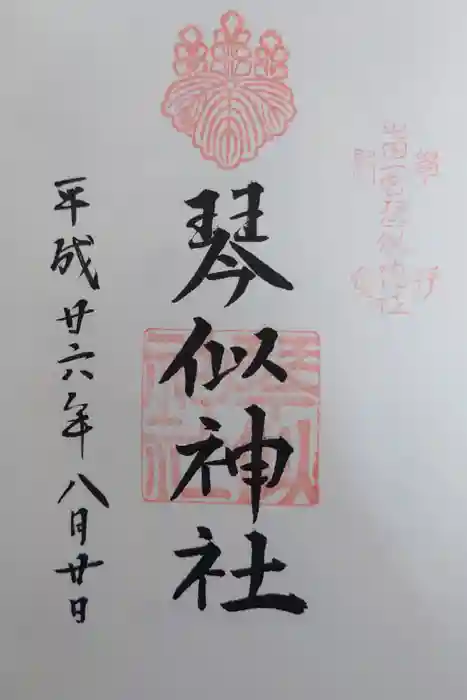 琴似神社
平成廿六年八月廿日